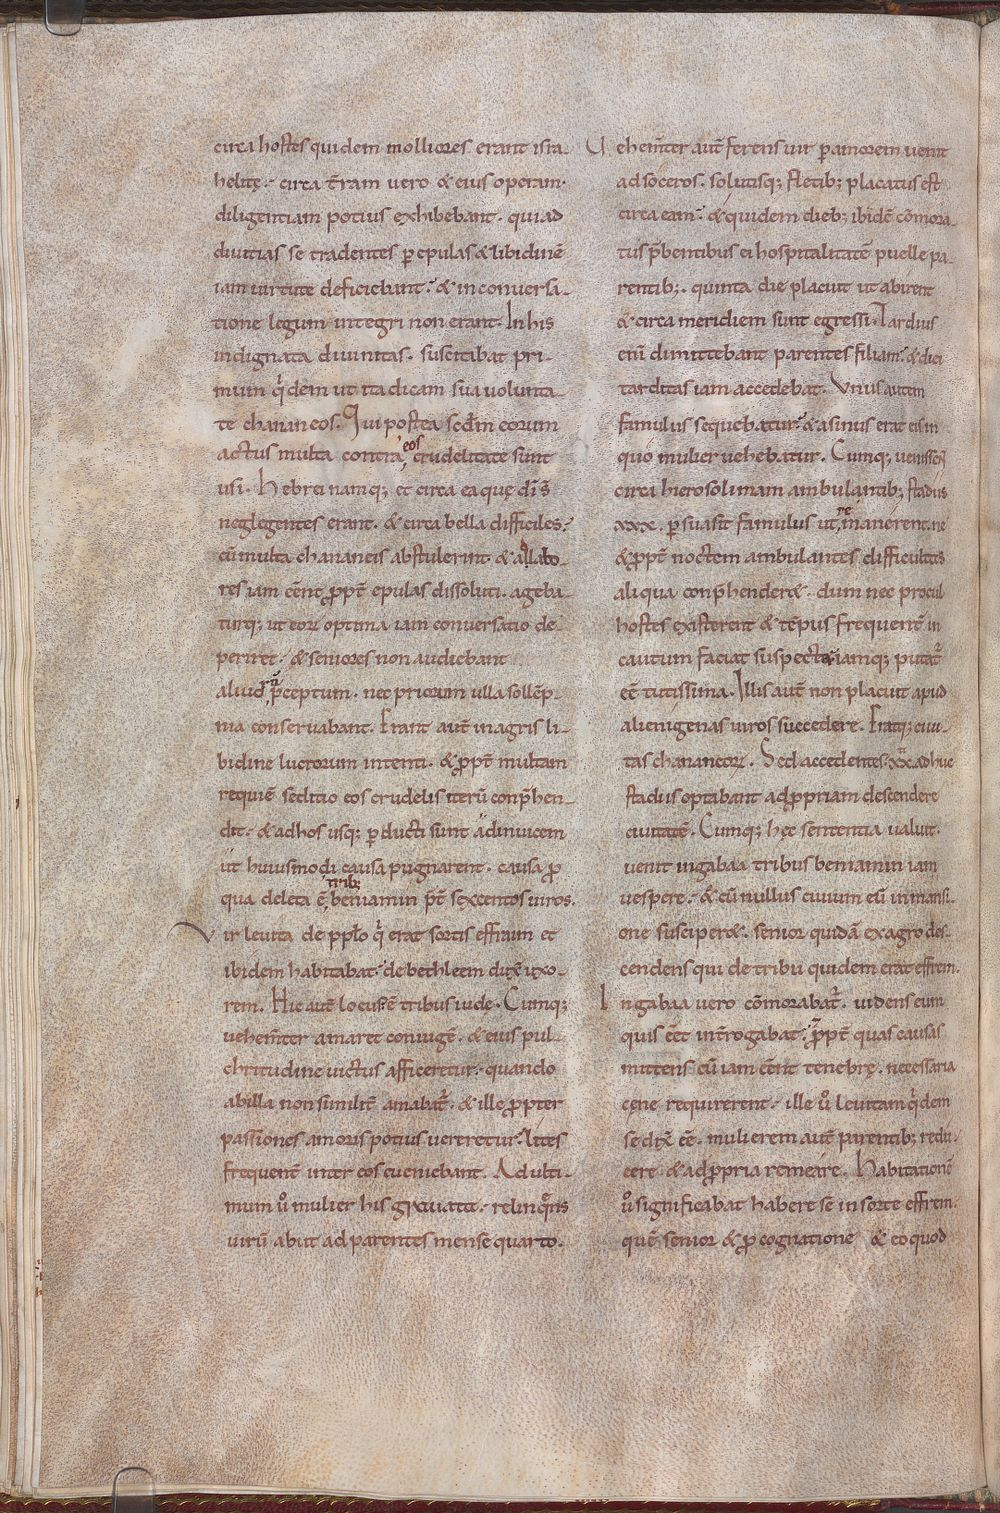 circa hostes quidem molliores erant isra-
helitę. circa t̄ram vero & eius operam.
diligentiam potius exhibebant. qui ad
divitias se tradentes p epulas & libidinē
iam virtute deficiebant. & in conversa-
tione legum integri non erant. In his
indignata divinitas. suscitabat pri-
mum q'dem ut ita dicam sua volunta-
te chananeos. Qui postea scdm eorum
actus multa contra eos crudelitate sunt
usi. Hebrei namq; et circa ea quę dī s̄
neglegentes erant. & circa bella difficiles.
cū multa chananeis abstulerint. & a labo-
res iam cēnt ppt̄ epulas dissoluti. ageba-
turq; ut eoꝝ optima iam conversatio de-
periret. & seniores non audiebant
aliud p̄ceptum. nec priorum ulla sollēp-
nia conservabant. Erant aut̄ in agris li-
bidine lucrorum intenti. & ppt̄ multam
requiē seditio eos crudelis iterū conp̄hen-
dit. & ad hos usq; pducti sunt ad invicem
ut huiusmodi causa pugnarent. causa p
qua deleta ē trib; beniamin p̄t sexcentos viros.
Vir levita de pplo q' erat sortis effraim et
ibidem habitabat. de bethleem duxit uxo-
rem. Hic aut̄ locus ē tribus iude. Cumq;
vehemt̄er amaret coniugē. & eius pul-
chritudine victus afficeretur. quando
ab illa non similit̄ amabat'. & ille ppter
passiones amoris potius ureretur. lites
frequent̄ inter eos eveniebant. Ad ulti-
mum ů mulier his gravata. relinquens
virū abiit ad parentes mense quarto.
Vehemt̄er aut̄ ferens vir p amorem venit
ad soceros. solutisq; fletib; placatus est
circa eam. & quidem dieb; ibidē cōmora-
tus p̄bentibus ei hospitalitatē puelle pa-
rentib;. quinta die placuit ut abirent
& circa meridiem sunt egressi. Tardius
enī dimittebant parentes filiam. & diei
tarditas iam accedebat. Unus autem
famulus sequebatur. & asinus erat eis in
quo mulier vehebatur. Cumq; venissent
circa hierosolimam ambulantib; stadiis
xxx. psuasit famulus ut remanerent. ne
& ppt̄ noctem ambulantes difficultas
aliqua conp̄henderet. dum nec procul
hostes existerent & tēpus frequent̄ in
cautum faciat suspecta. iamq; putat'
eē tutissima. Illis aut̄ non placuit apud
alienigenas viros succedere. Eratq; civi-
tas chananeoꝝ. Sed accedentes. xx. adhuc
stadiis optabant ad ppriam descendere
civitatē. Cumq; hęc sententia valuit.
venit in gabaa tribus beniamin iam
vespere. & cū nullus civium eū in mansi-
one susciperet. senior quidā ex agro des-
cendens qui de tribu quidem erat effrem.
In gabaa vero cōmorabat'. videns eum
quis eēt int̄rogabat. ppt̄ quas causas
mittens cū iam cēnt tenebrę. necessaria
cene requirerent. ille ů levitam q'dem
se dix̄ eē. mulierem aut̄ parentib; redu-
cere. & ad ppria remeare. Habitationē
ů significabat habere se in sorte effrem.
quē senior & p cognatione & eo quod